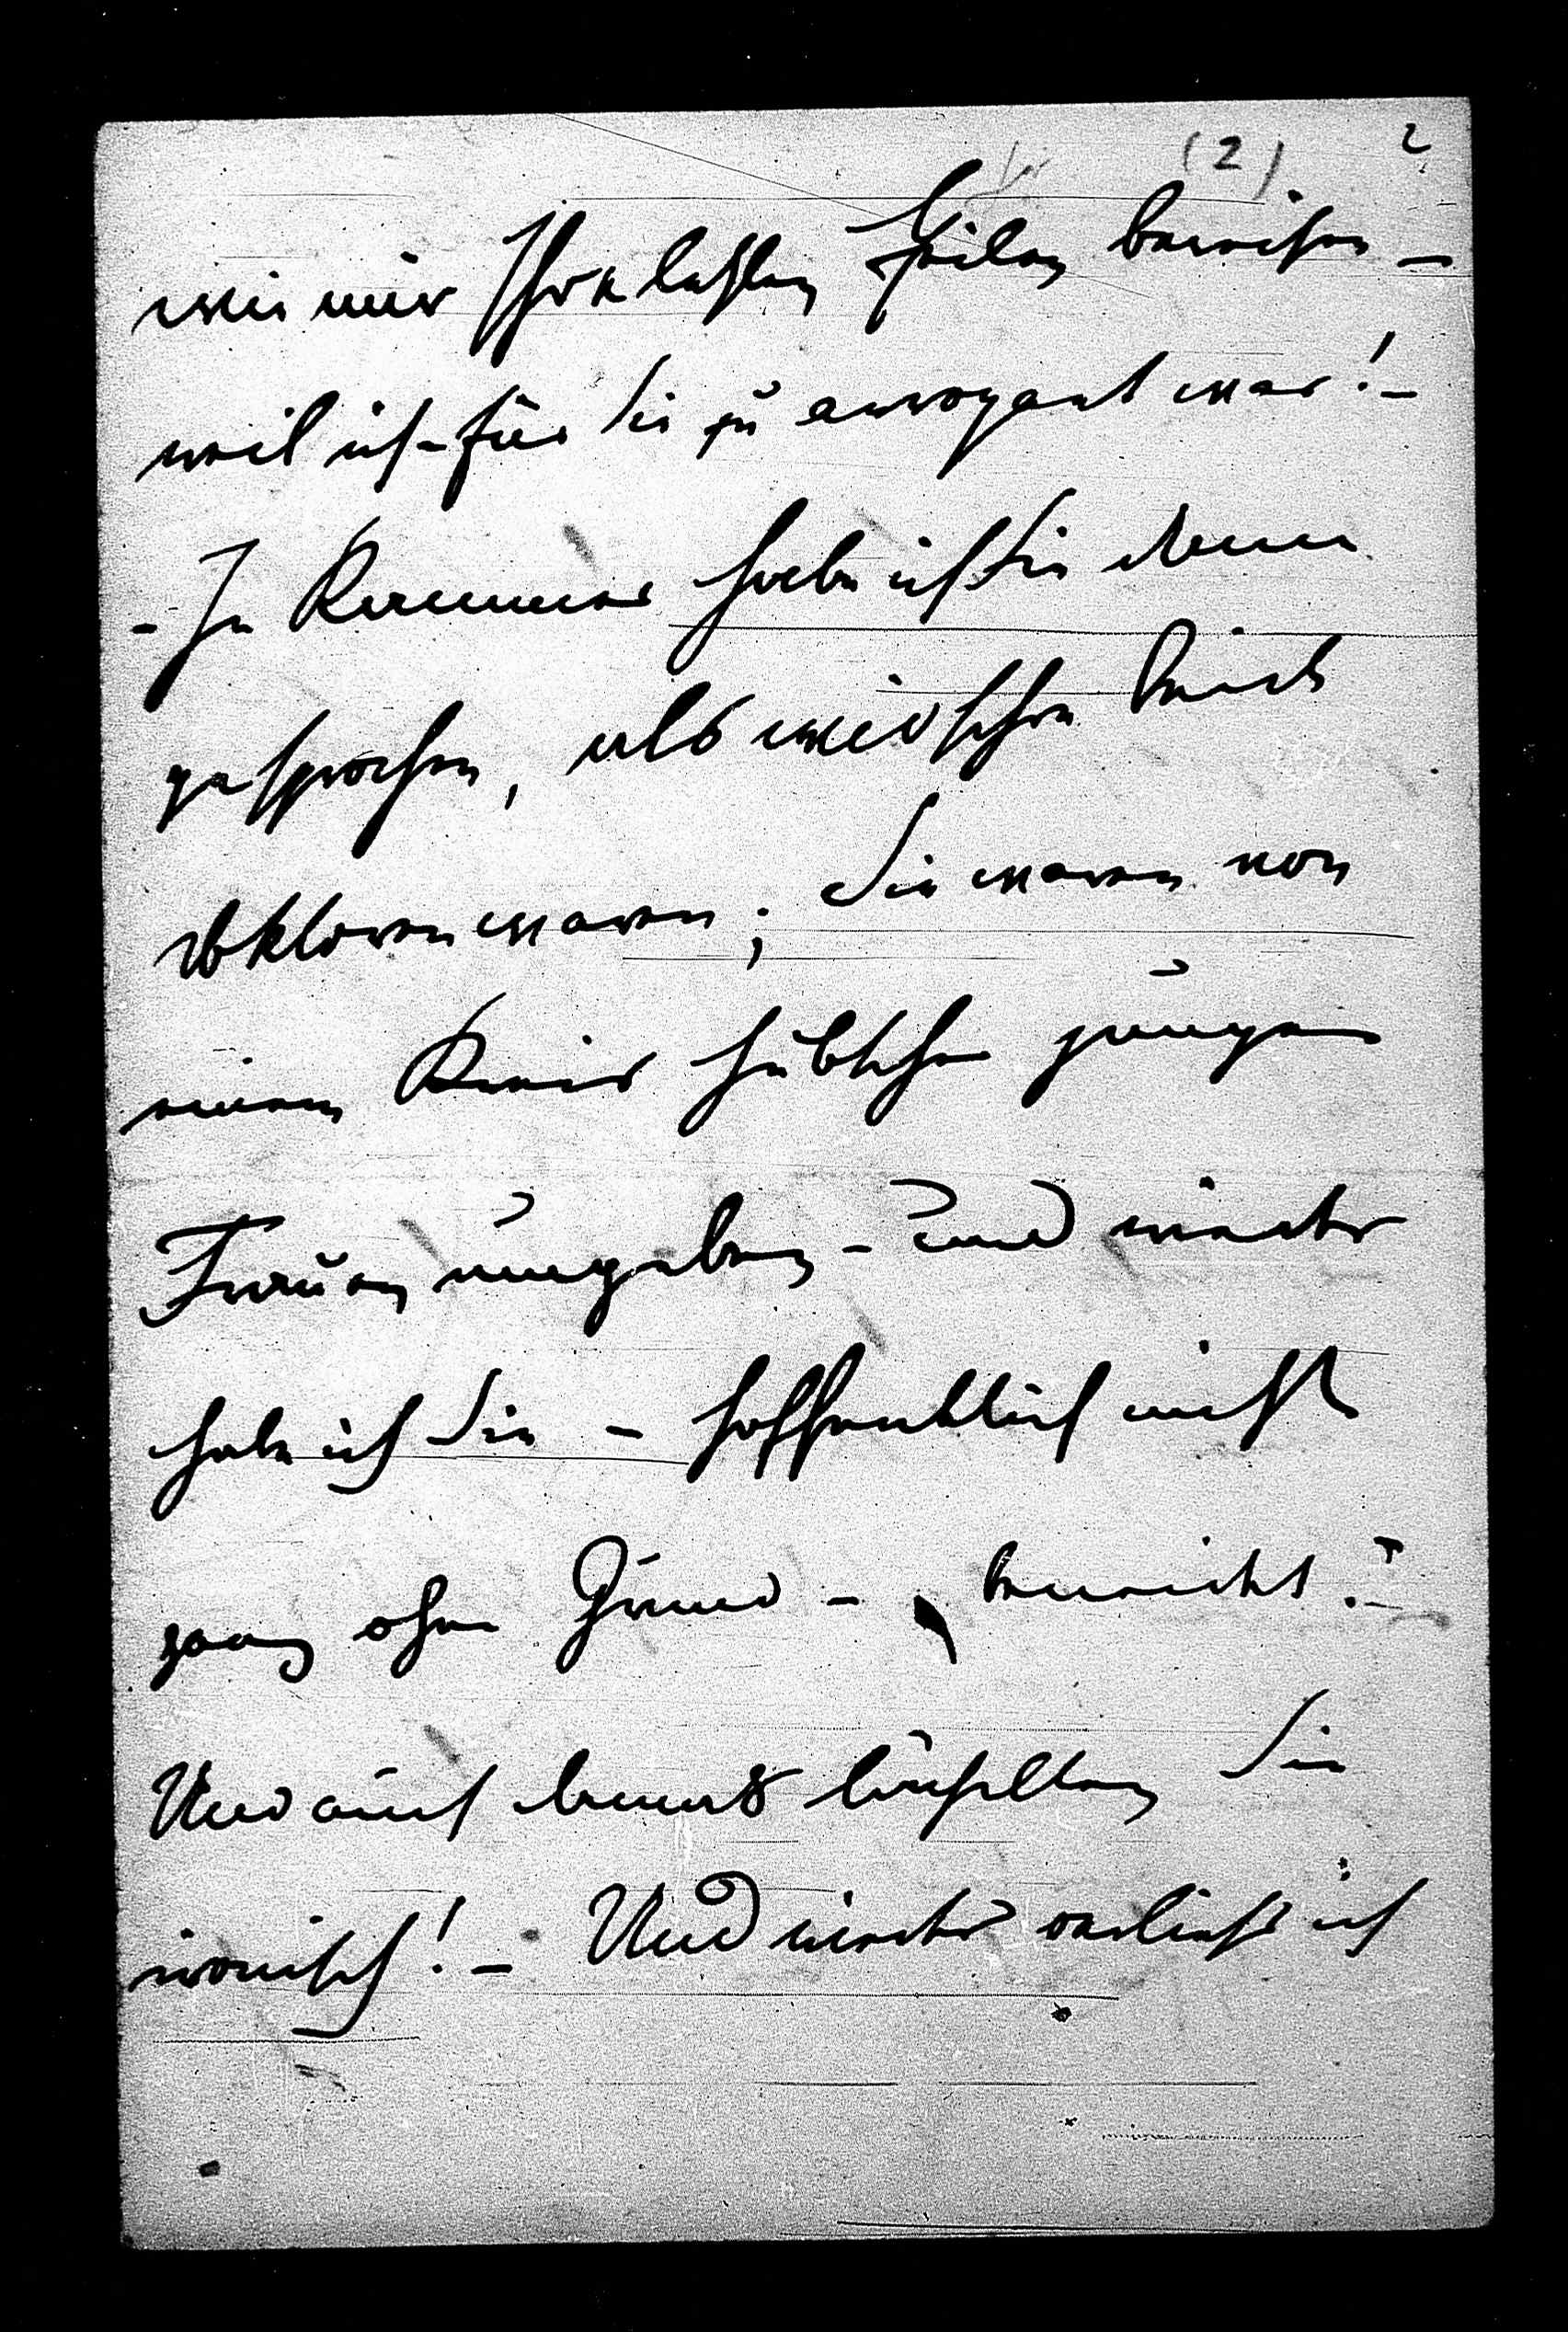 (2) 2
wie mir Ihre letzten Zeilen beweisen –
weil ich für Sie zu arrogant war! –
– In Kammer habe ich Sie dann
gesprochen, als wir schon beide
Doktoren waren; Sie waren von
einem Kreis hübscher junger
Frauen umgeben – und wieder
habe ich Sie – hoffentlich nicht
ganz ohne Grund – beneidet. –
Und auch damals lächelten Sie
ironisch! – Und wieder verliess ich